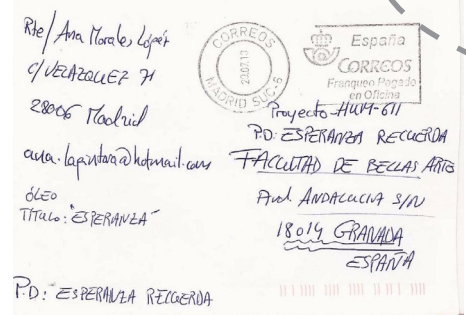 Rte/ Ana Morales López
C/ VELAZQUEZ 71
28006 Madrid
ana.lapintora@hotmail.com
ÓLEO
TÍTULO: "ESPERANZA"
P.D: ESPERANZA RECUERDA
CORREOS
23.07.13
MADRID SUC-6
España
CORREOS
Franqueo Pagado
en Oficina
Proyecto-HUM-611
P.D: ESPERANZA RECUERDA
FACULTAD DE BELLAS ARTES
Avd. ANDALUCIA S/N
18014 GRANADA
ESPAÑA